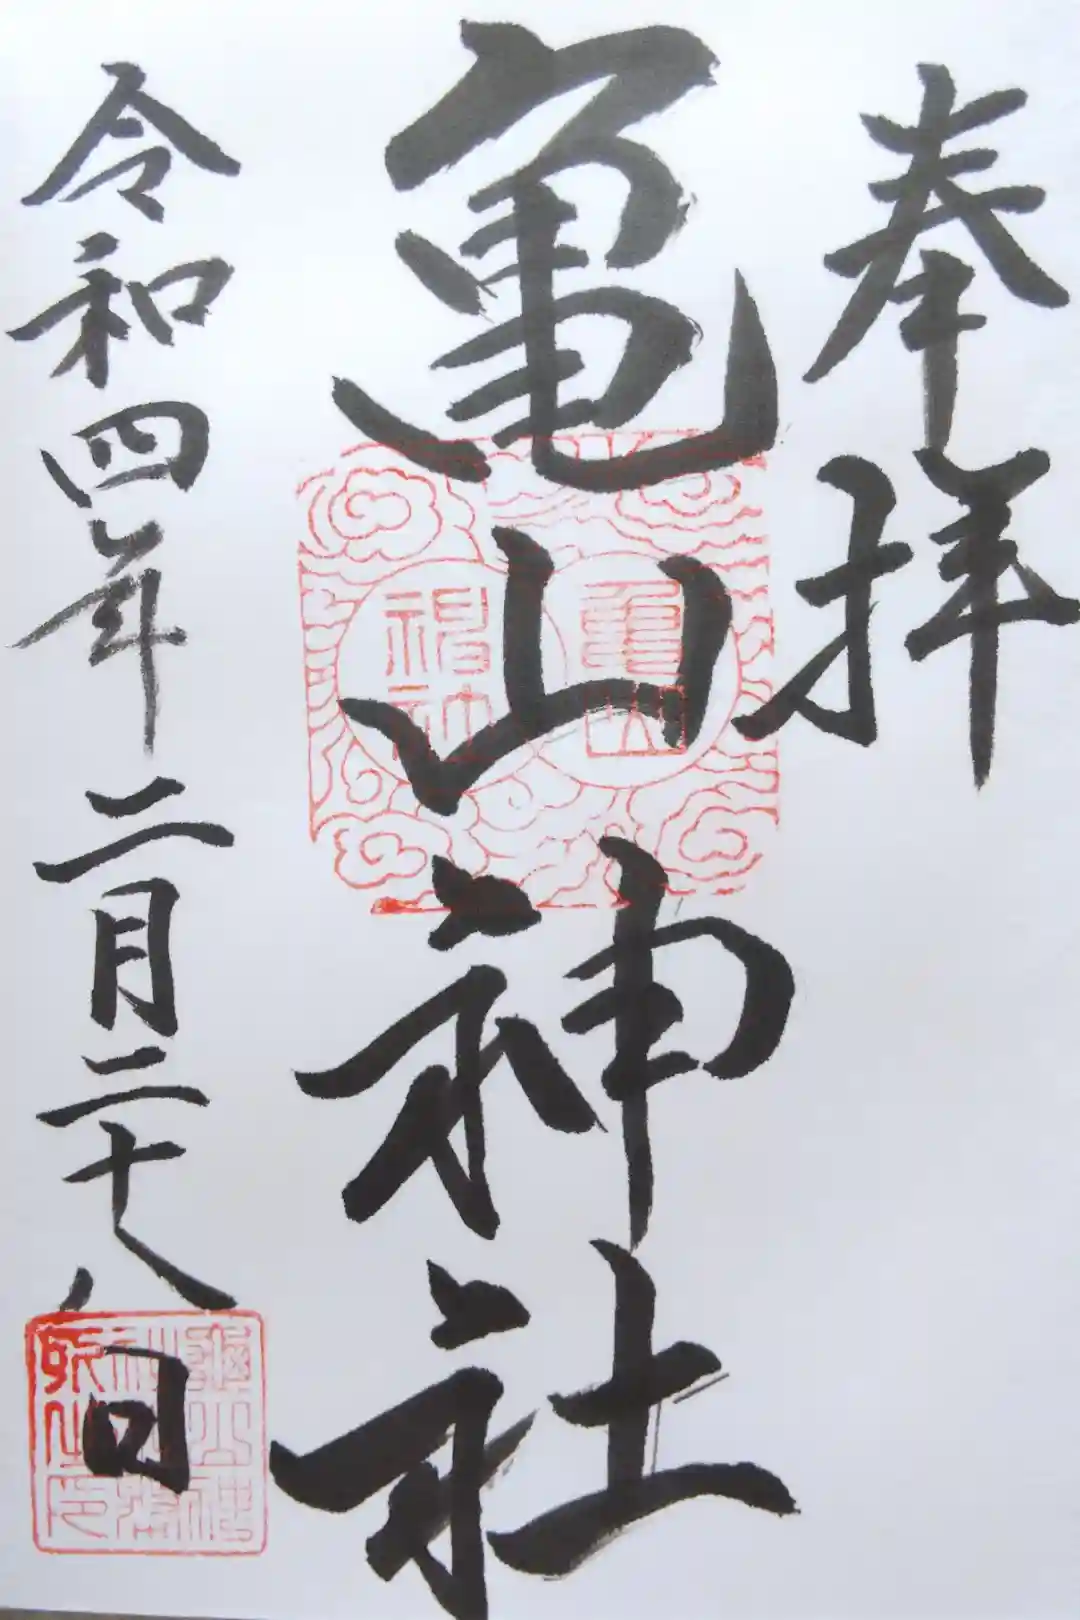 奉拝
亀山神社
亀山
神社
令和四年二月二十八日